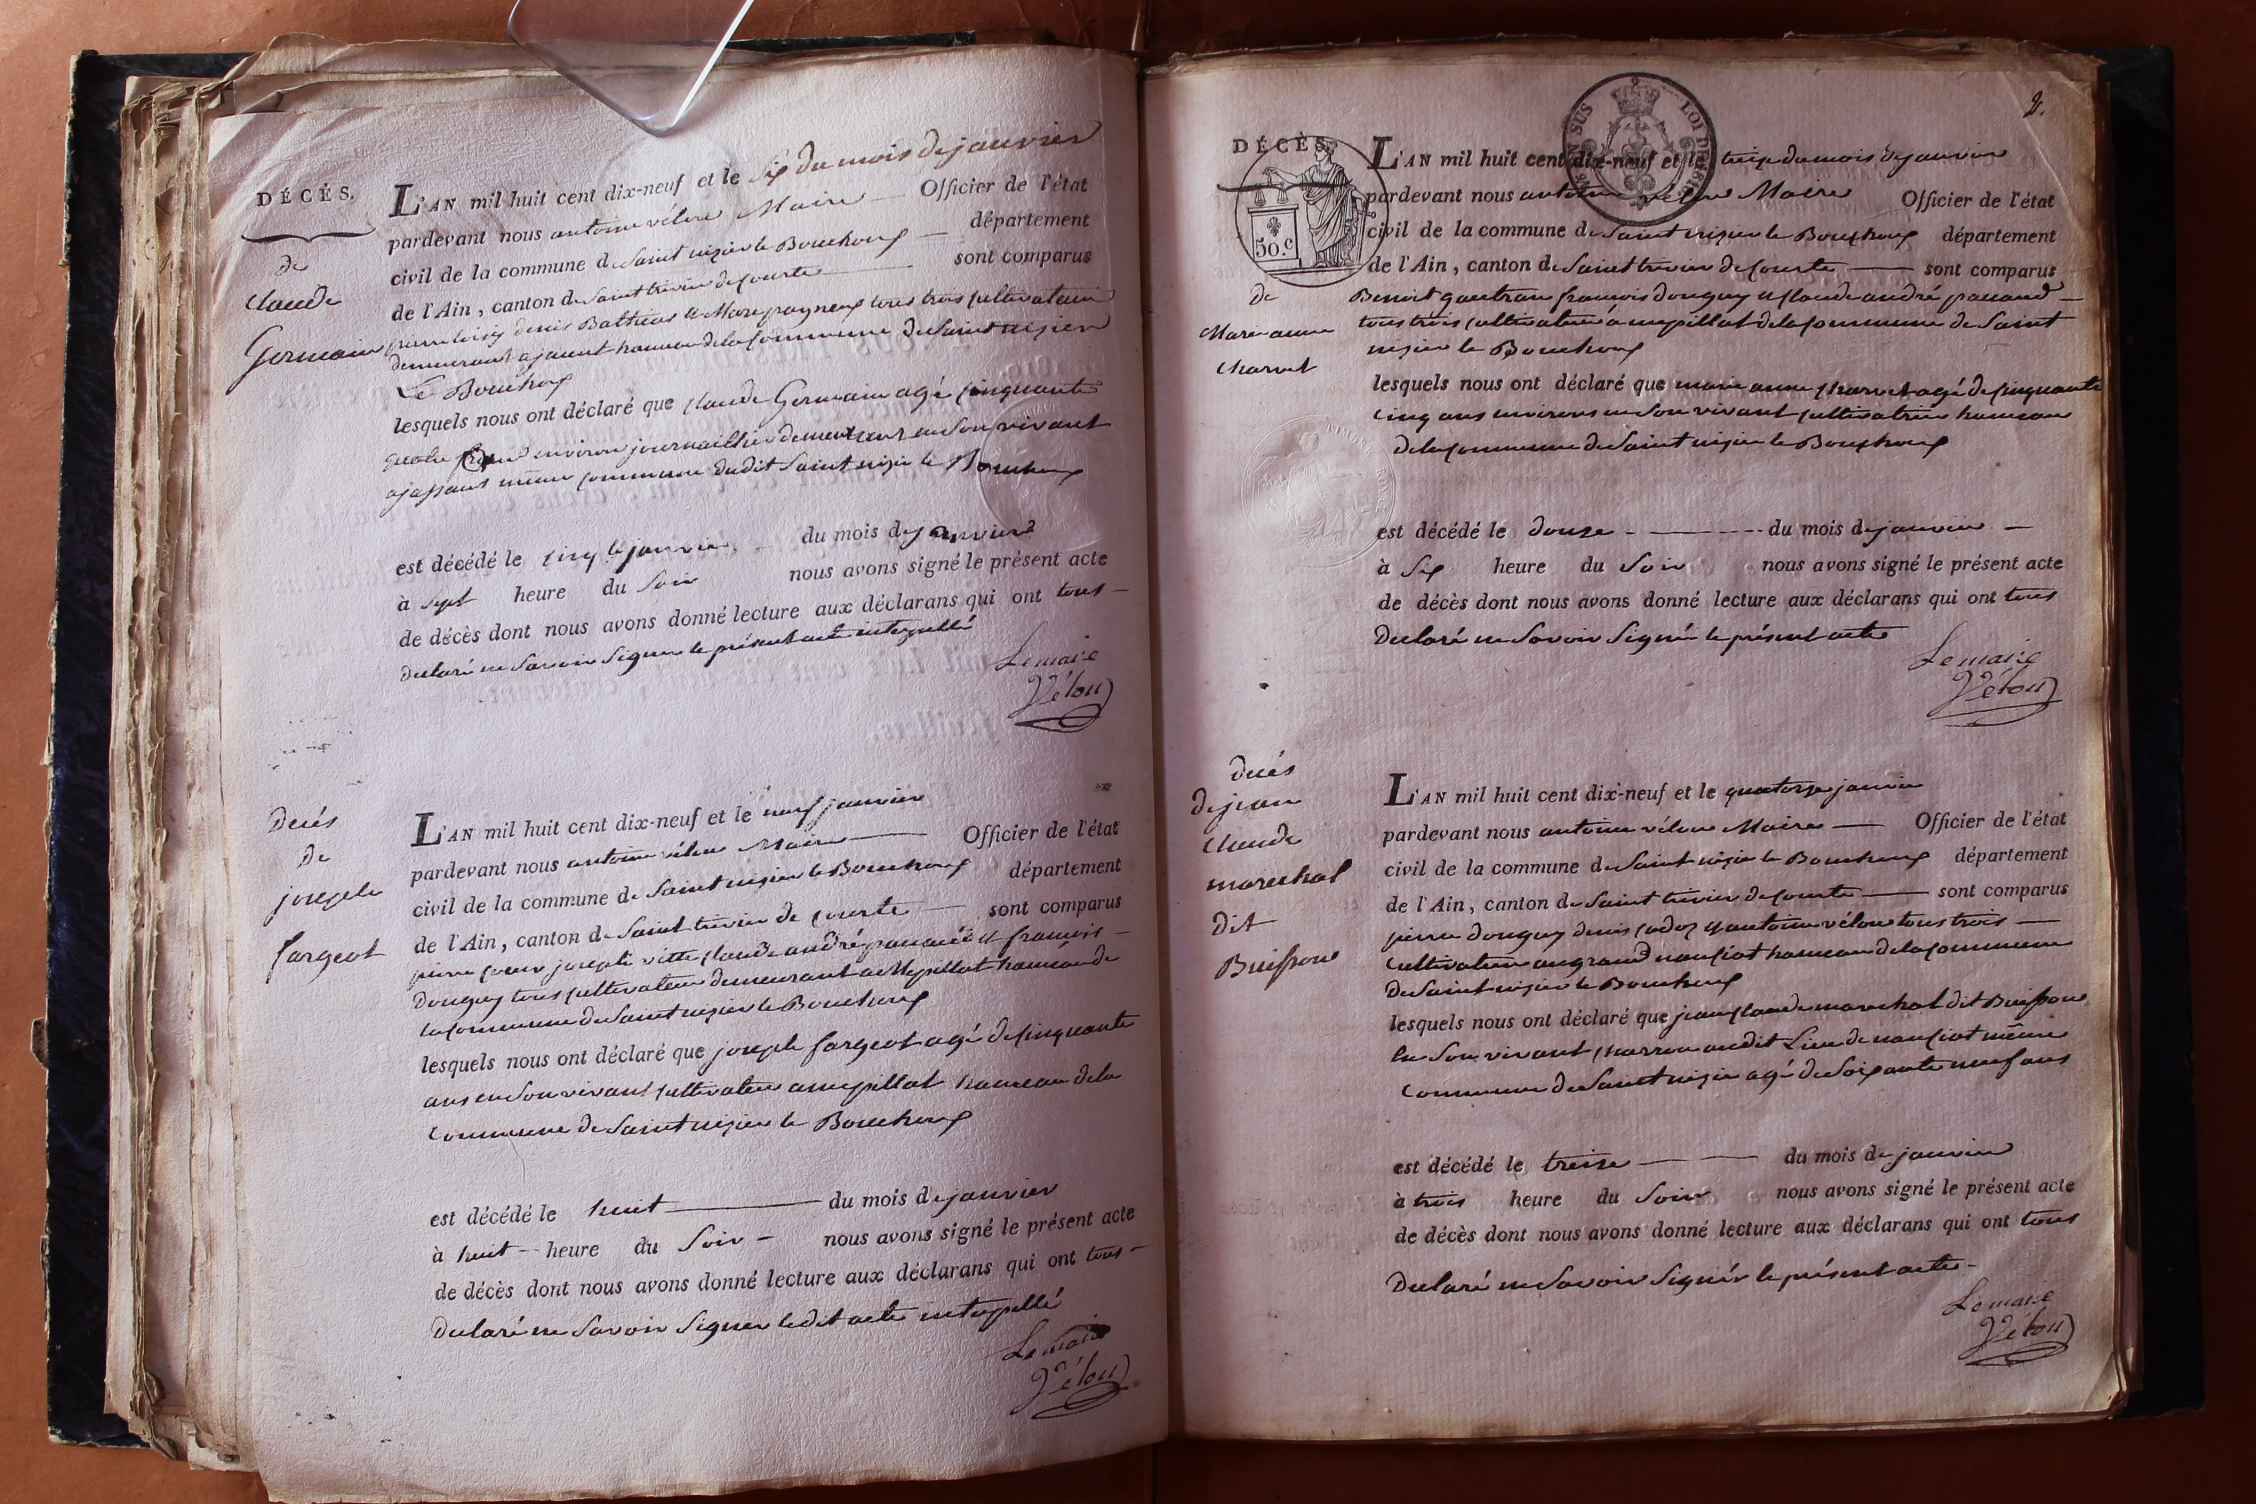 DÉCÈS.
de
Claude
Germain
L'AN mil huit cent dix-neuf et le six du mois de janvier
pardevant nous antoine vélou Maire Officier de l'état
civil de la commune de Saint nizier le Bouchoux département
de l'Ain, canton de Saint trivier de Courte sont comparus
denis Bathias & Marc tous trois cultivateurs
demeurant hameau de la Commune de Saint nizier
Le Bouchoux
lesquels nous ont déclaré que claude Germain agé cinquante
quatre environ journaillier demeurant en Son vivant
même commune dudit Saint nizier le Bouchoux
est décédé le cinq janvier du mois de janvier
à sept heure du Soir nous avons signé le présent acte
de décès dont nous avons donné lecture aux déclarans qui ont tous
declaré ne Savoir Signer le présent acte interpellé
Le maire
Vélou
Decés
de
joseph
fargeot
L'AN mil huit cent dix-neuf et le neuf janvier
pardevant nous antoine vélou Maire Officier de l'état
civil de la commune de Saint nizier le Bouchoux département
de l'Ain, canton de Saint trivier de Courte sont comparus
pierre joseph vitte claude andré & francois
Douguy tous cultivateurs demeurant a Mepillat hameau de
la commune de Saint nizier le Bouchoux
lesquels nous ont déclaré que joseph fargeot agé de cinquante
ans en Son vivant cultivateur a mepillat hameau de la
Commune de Saint nizier le Bouchoux
est décédé le huit du mois de janvier
à huit heure du Soir nous avons signé le présent acte
de décès dont nous avons donné lecture aux déclarans qui ont tous
declaré ne Savoir Signer ledit acte interpellé
Le maire
Vélou
2.
DÉCÈS.
50.c
de
Marie anne
Charvet
L'AN mil huit cent dix-neuf et le treize du mois de janvier
pardevant nous antoine vélou Maire Officier de l'état
civil de la commune de Saint nizier le Bouchoux département
de l'Ain, canton de Saint trivier de Courte sont comparus
Benoit gautran francois douguy & claude andré
tous trois cultivateurs a mepillat de la Commune de Saint
nizier le Bouchoux
lesquels nous ont déclaré que marie anne charvet agé de cinquante
cinq ans environs en Son vivant cultivatrice hameau
de la Commune de Saint nizier le Bouchoux
est décédé le douze du mois de janvier
à Six heure du Soir nous avons signé le présent acte
de décès dont nous avons donné lecture aux déclarans qui ont tous
Declaré ne Savoir Signér le présent acte
Le maire
Vélou
decés
de jean
Claude
marechal
dit
Buisson
L'AN mil huit cent dix-neuf et le quatorze janvier
pardevant nous antoine vélou Maire Officier de l'état
civil de la commune de Saint nizier le Bouchoux département
de l'Ain, canton de Saint trivier de Courte sont comparus
pierre douguy denis & antoine vélou tous trois
Cultivateurs au grand hameau de la commune
de Saint nizier le Bouchoux
lesquels nous ont déclaré que jean claude marechal dit Buisson
en Son vivant charron audit Lieu de même
Commune de Saint nizier agé de Soixante neuf ans
est décédé le treize du mois de janvier
à trois heure du Soir nous avons signé le présent acte
de décès dont nous avons donné lecture aux déclarans qui ont tous
Declaré ne Savoir Signér le présent acte
Le maire
Vélou